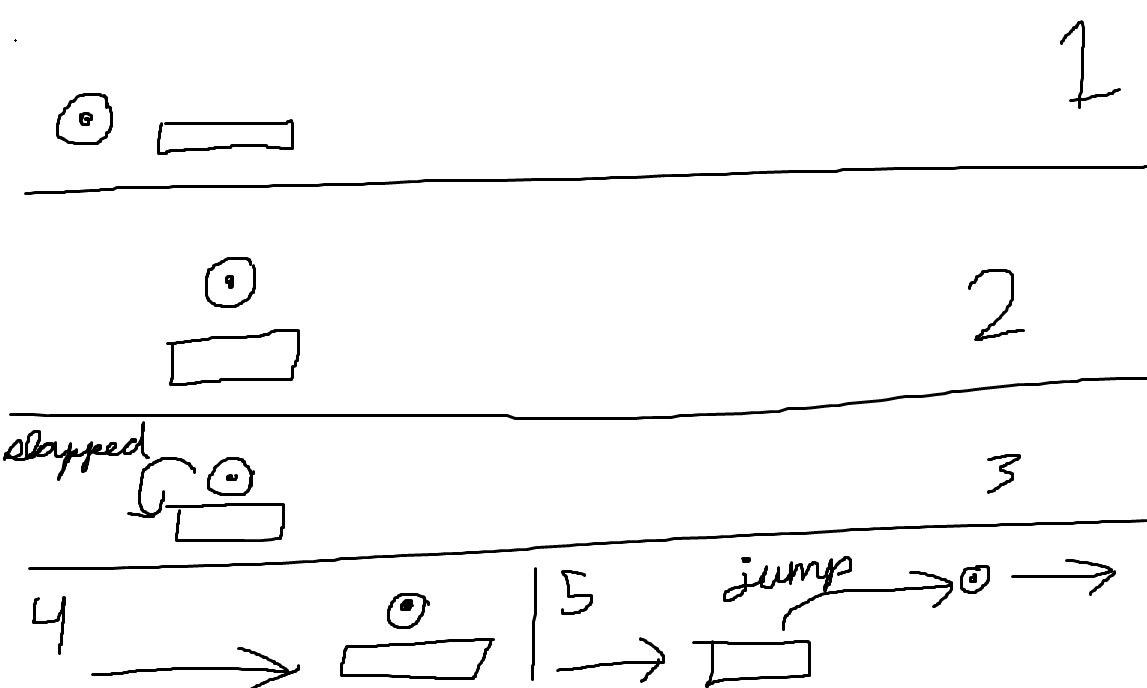 1
2
slapped
3
4
5
jump